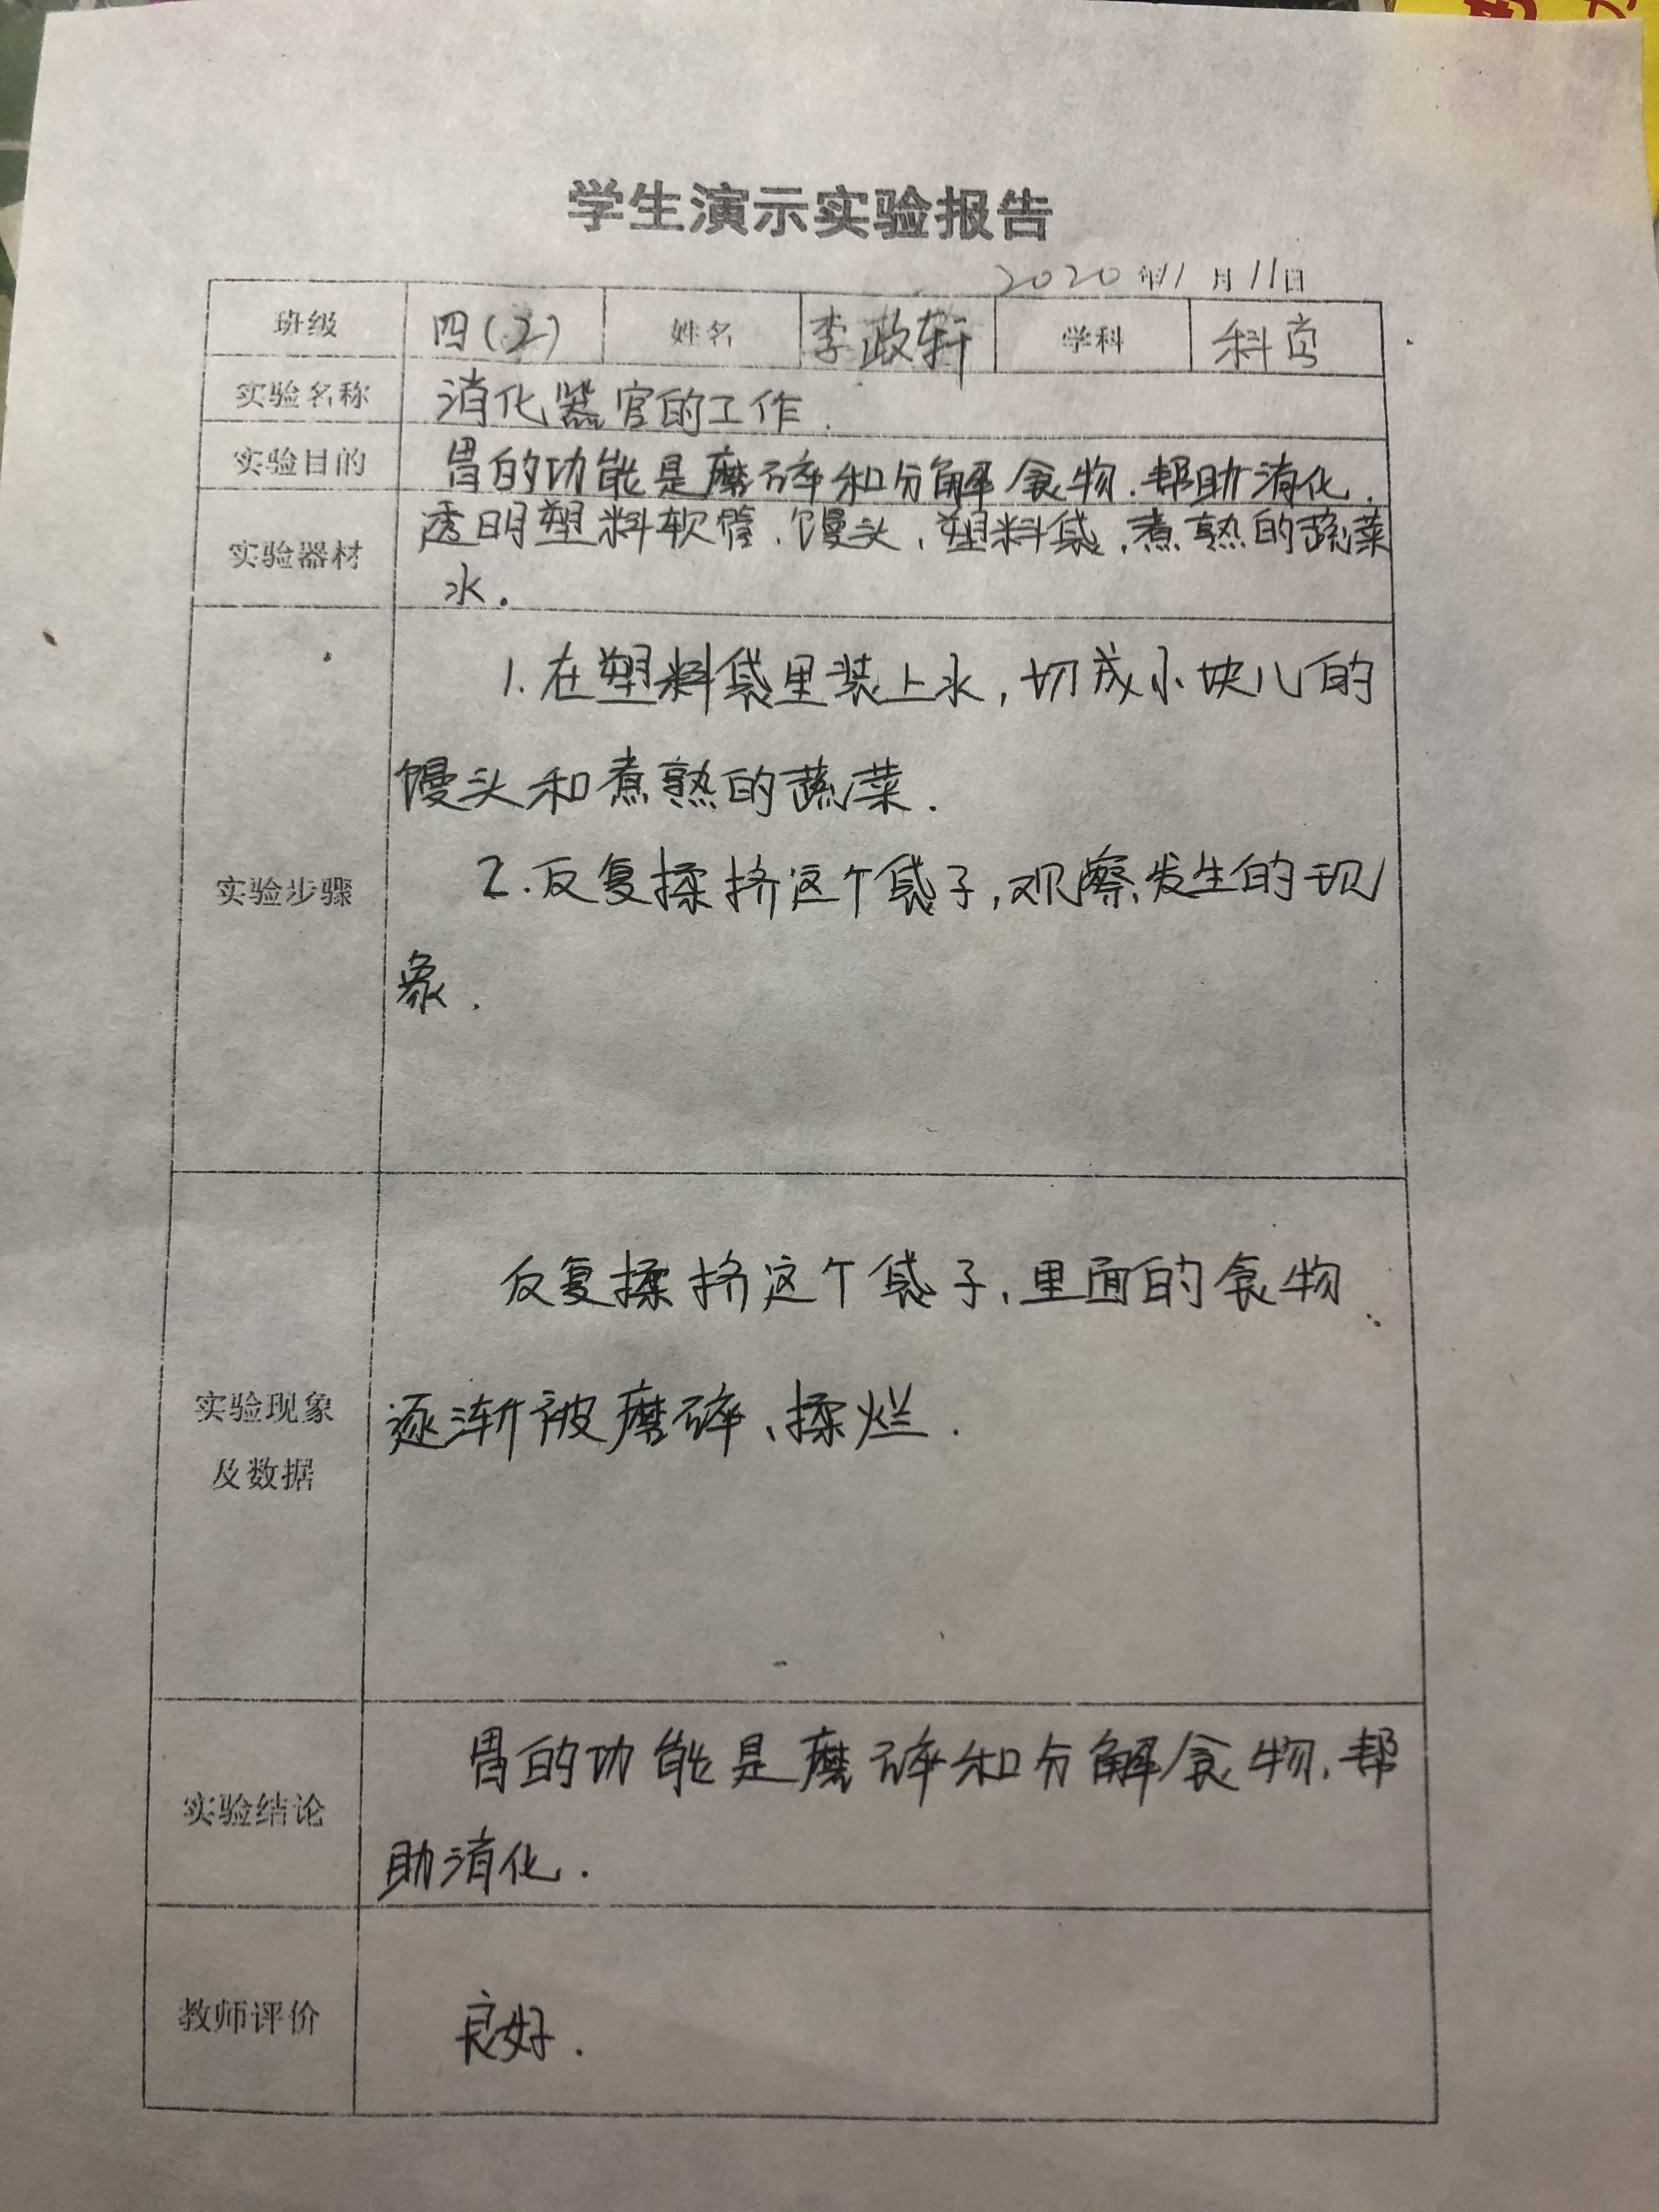 学生演示实验报告
2020年11月11日
班级 四(2) 姓名 李政轩 学科 科学
实验名称 消化器官的工作.
实验目的 胃的功能是磨碎和分解食物.帮助消化.
实验器材 透明塑料软管、馒头、塑料袋、煮熟的蔬菜
水.
1.在塑料袋里装上水,切成小块儿的
馒头和煮熟的蔬菜.
2.反复揉挤这个袋子,观察发生的现
实验步骤
象.
反复揉挤这个袋子、里面的食物
实验现象
及数据
逐渐被磨碎、揉烂.
胃的功能是磨碎和分解食物.帮
实验结论
助消化.
教师评价 良好.